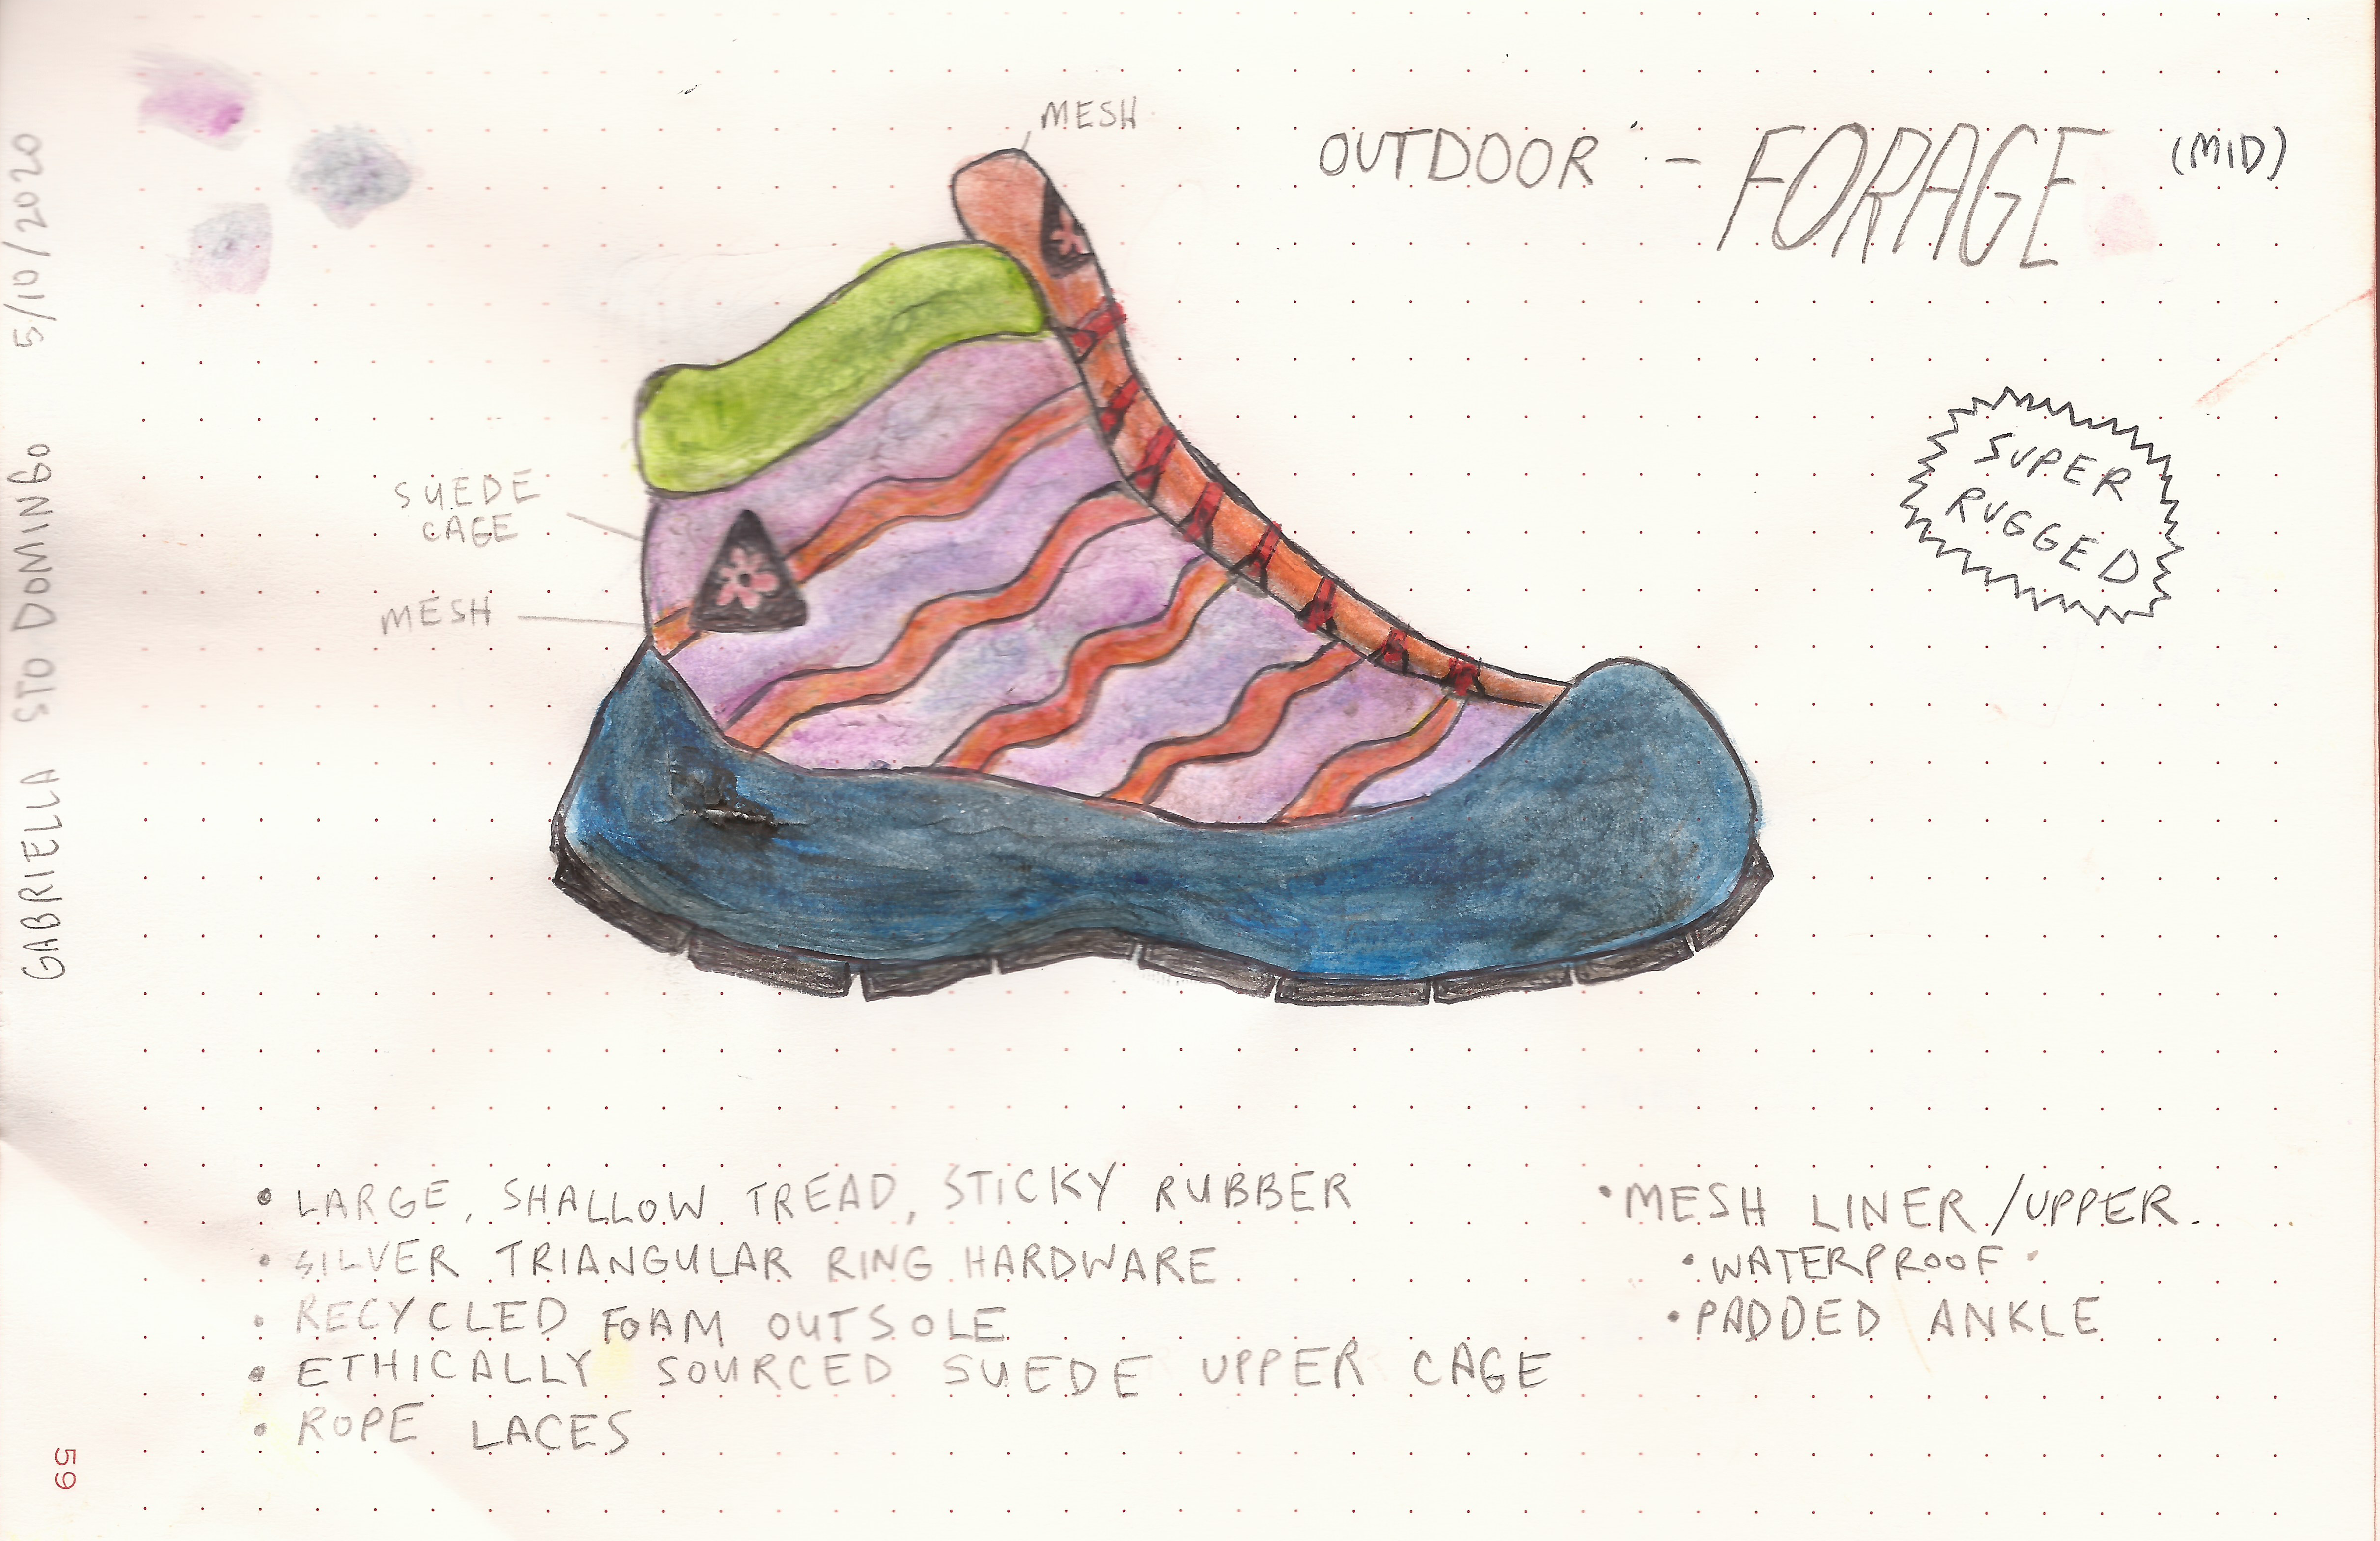 MESH
OUTDOOR - FORAGE (MID)
SUPER
RUGGED
SUEDE
CAGE
MESH
GABRIELLA STO DOMINGO 5/10/2020
• LARGE, SHALLOW TREAD, STICKY RUBBER
• SILVER TRIANGULAR RING HARDWARE
• RECYCLED FOAM OUTSOLE
• ETHICALLY SOURCED SUEDE UPPER CAGE
• ROPE LACES
• MESH LINER/UPPER.
• WATERPROOF
• PADDED ANKLE
59